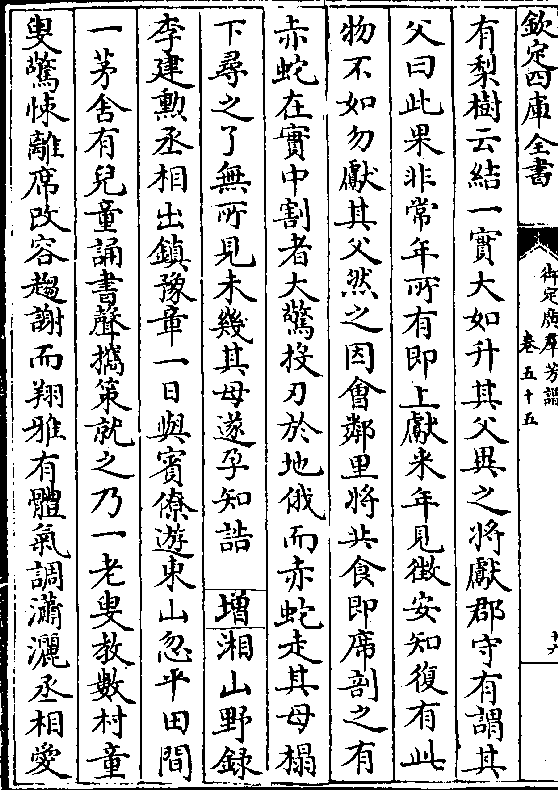 欽定四庫全書
御定廣羣芳譜
卷五十五
十六
有梨樹云結一實大如升其父異之將獻郡守有謂其
父曰此果非常年所有即上獻来年見徵安知復有此
物不如勿獻其父然之因會鄰里將共食即席剖之有
赤蛇在實中割者大驚投刃於地俄而赤蛇走其母榻
下尋之了無所見未幾其母遂孕知誥 增湘山野録
李建勲丞相出鎮豫章一日與賓僚遊東山忽平田間
一茅舎有兒童誦書聲攜策就之乃一老叟教數村童
叟驚悚離席改容趨謝而翔雅有體氣調瀟灑丞相愛